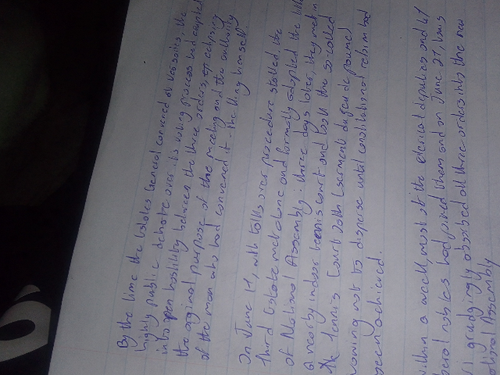 By the time the Estates General convened at Versailles, the
highly public debate over its voting process had erupted
into open hostility between the three orders, eclipsing
the original purpose of the meeting and the authority
of the man who had convened it - the king himself.
On June 17, with talks over procedure stalled, the
Third Estate met alone and formally adopted the title
of National Assembly. three days later, they met in
a nearby indoor tennis court and took the so called
tennis court oath (serment du jeu de paume)
vowing not to disperse until constitutional reform had
been achieved.
Within a week, most of the clerical deputies and 47
liberal nobles had joined them and on June 27, Louis
grudgingly absorbed all three orders into the new
National Assembly